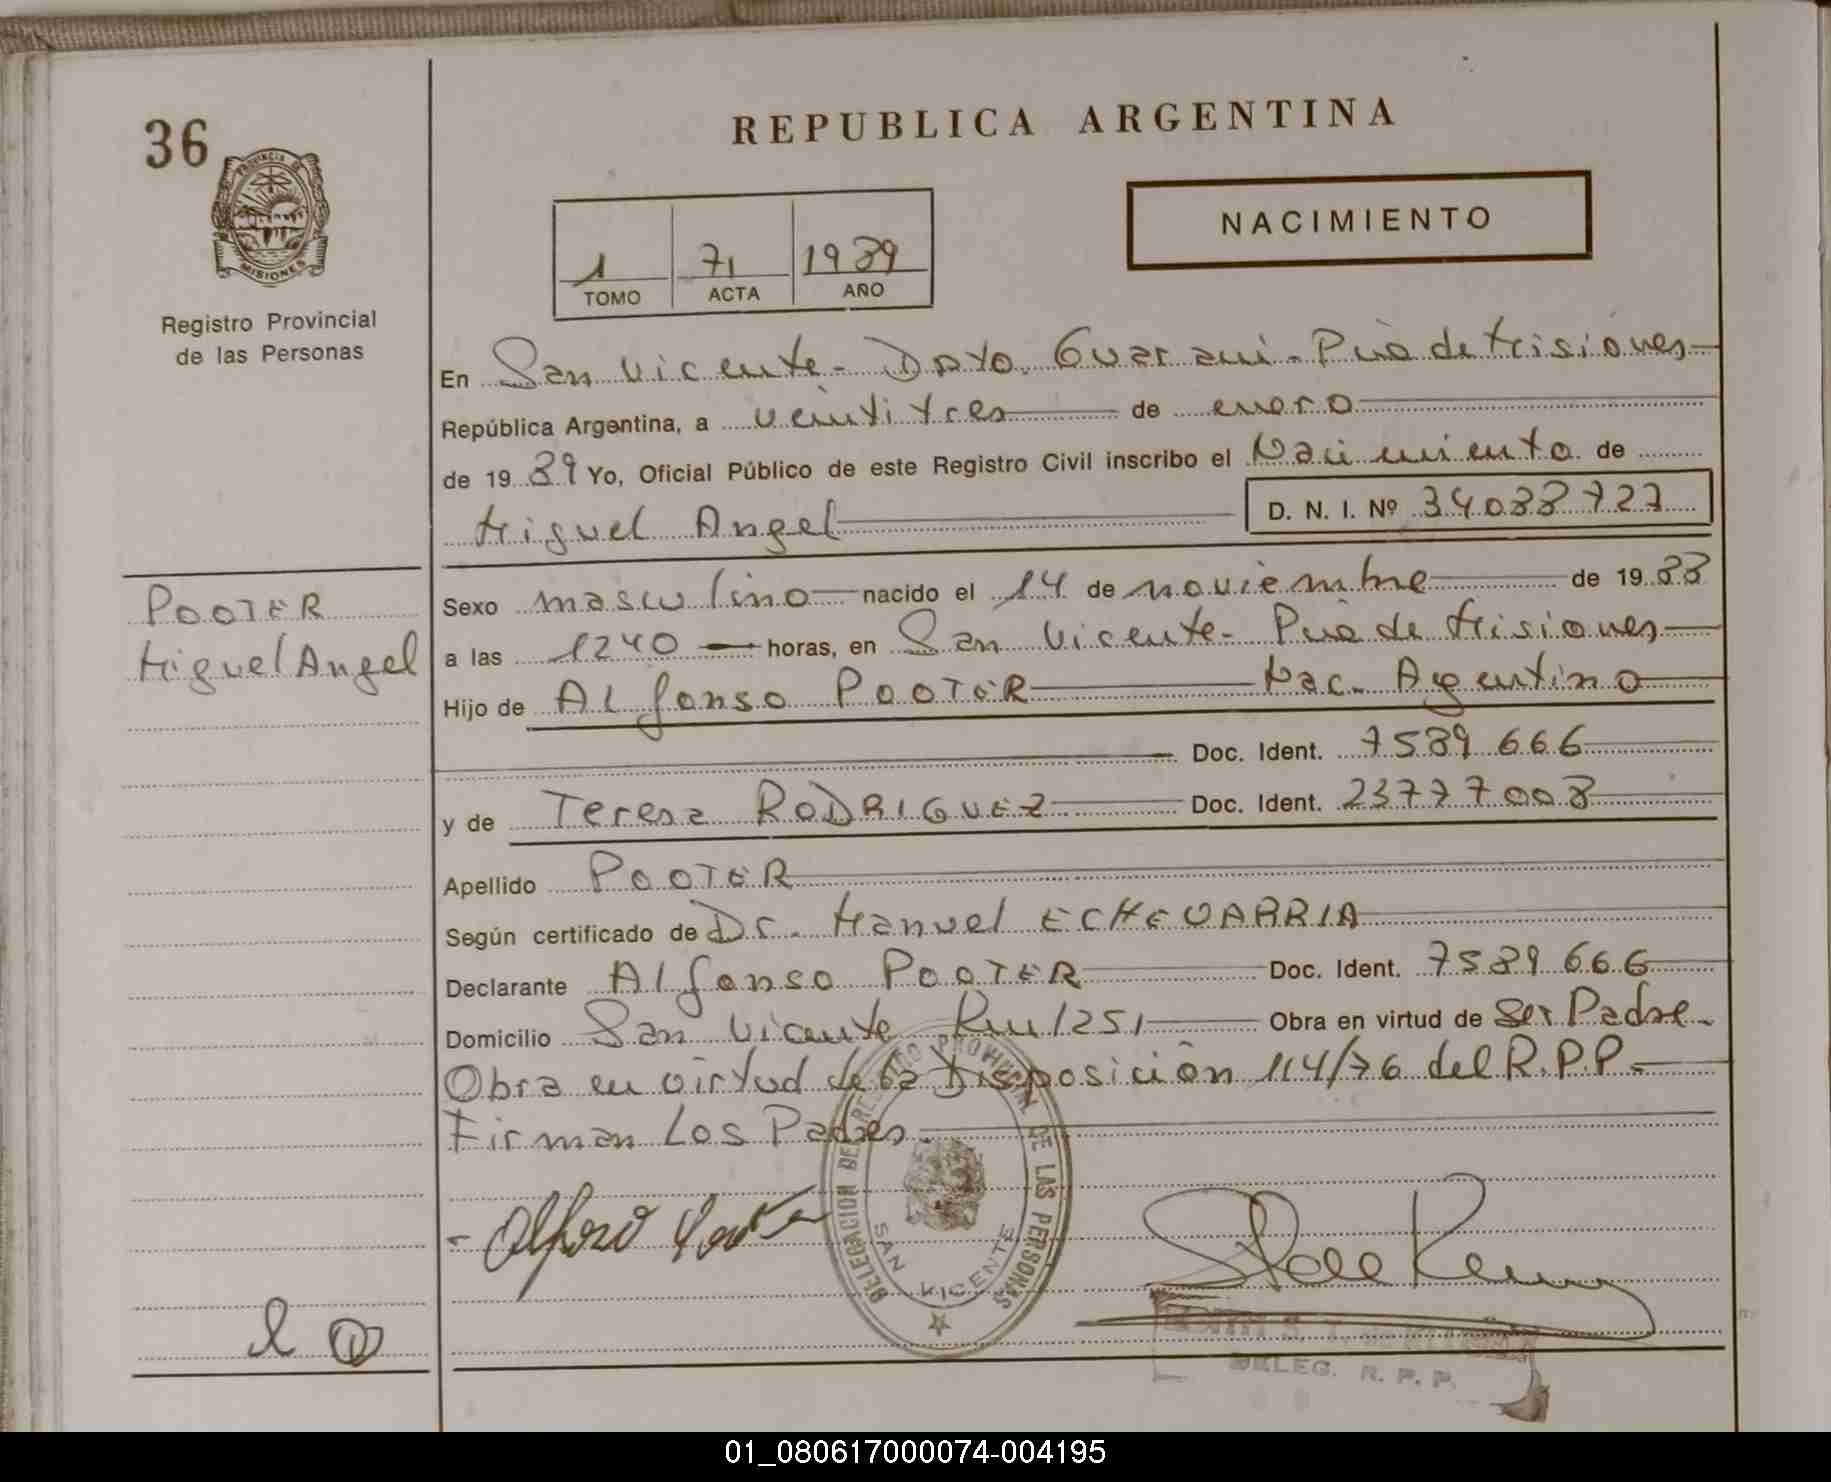 36
REPUBLICA ARGENTINA
PROVINCIA DE
MISIONES
Registro Provincial
de las Personas
1 71 1989
TOMO ACTA AÑO
NACIMIENTO
En San Vicente - Dpto. Guaraní - Pcia de Misiones
República Argentina, a veintitres de enero
de 1989 Yo, Oficial Público de este Registro Civil inscribo el Nacimiento de
Miguel Angel D. N. I. Nº 34088727
POOTER
Miguel Angel
Sexo masculino nacido el 14 de noviembre de 1988
a las 1240 horas, en San Vicente - Pcia de Misiones
Hijo de Alfonso POOTER Nac. Argentino
Doc. Ident. 7589666
y de Teresa RODRIGUEZ Doc. Ident. 23777008
Apellido POOTER
Según certificado de Dr. Manuel ECHEVARRIA
Declarante Alfonso POOTER Doc. Ident. 7589666
Domicilio San Vicente Km 1251 Obra en virtud de Ser Padre.
Obra en virtud de la Disposición 114/76 del R.P.P.
Firman Los Padres.
DELEGACION DEL REGISTRO PROVINCIAL DE LAS PERSONAS
SAN VICENTE
DELEG. R. P. P.
01_080617000074-004195